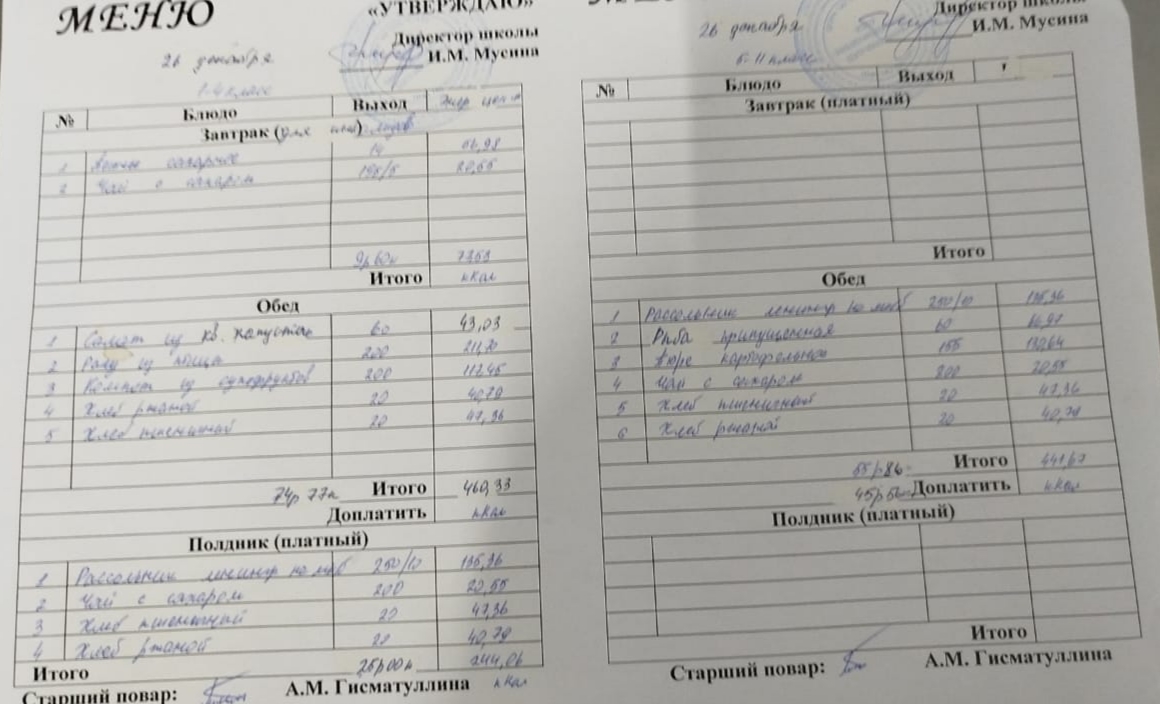 МЕНЮ
«УТВЕРЖДАЮ»
Директор школы
И.М. Мусина
26 декабря
1-4 класс
№ Блюдо Выход
Завтрак (для )
1
2 Чай с сахаром 195/5 20,55
Итого ккал
Обед
1 Салат из кв. капусты 60 43,03
2 Рагу из 200
3 Компот из сухофруктов 200 112,45
4 Хлеб ржаной 20 40,79
5 Хлеб пшеничный 20 47,36
74р 77к Итого 460,33
Доплатить ккал
Полдник (платный)
1 Рассольник ленингр на м/кб 250/10
2 Чай с сахаром 200 20,55
3 Хлеб пшеничный 20 47,36
4 Хлеб ржаной 20 40,79
Итого 25р00к 244,06
Старший повар: А.М. Гисматуллина ккал
Директор школы
И.М. Мусина
26 декабря
5-11 класс
№ Блюдо Выход
Завтрак (платный)
Итого
Обед
1 Рассольник ленингр на м/кб 250/10
2 Рыба припущенная 60
3 Пюре картофельное
4 Чай с сахаром 200 20,55
5 Хлеб пшеничный 20 47,36
6 Хлеб ржаной 20 40,79
Итого 441,67
Доплатить ккал
Полдник (платный)
Итого
Старший повар: А.М. Гисматуллина